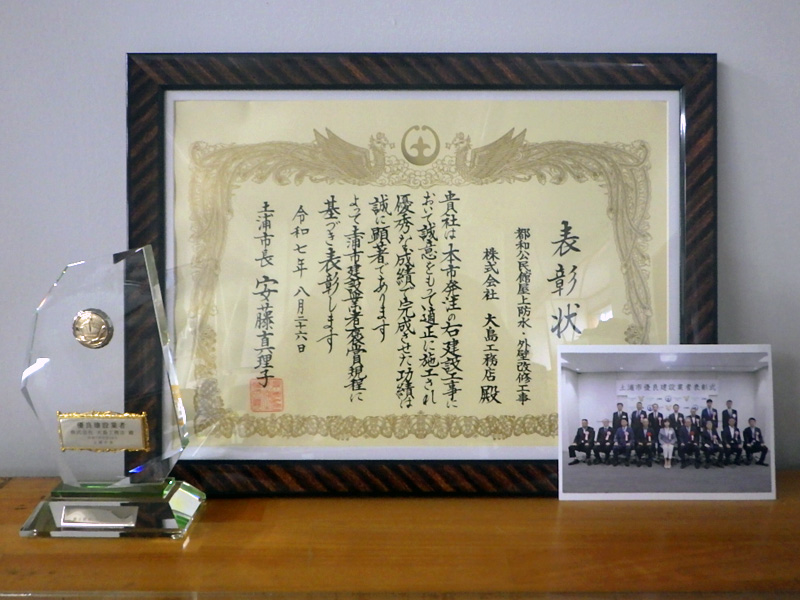 表彰状
都和公民館屋上防水・外壁改修工事
株式会社 大島工務店 殿
貴社は本市発注の右建設工事に
おいて誠意をもって適正に施工され
優秀な成績で完成させた功績は
誠に顕著であります
よって土浦市建設業者褒賞規程に
基づき表彰します
令和七年 八月二十六日
土浦市長 安藤真理子
優良建設業者
土浦市優良建設業者表彰式